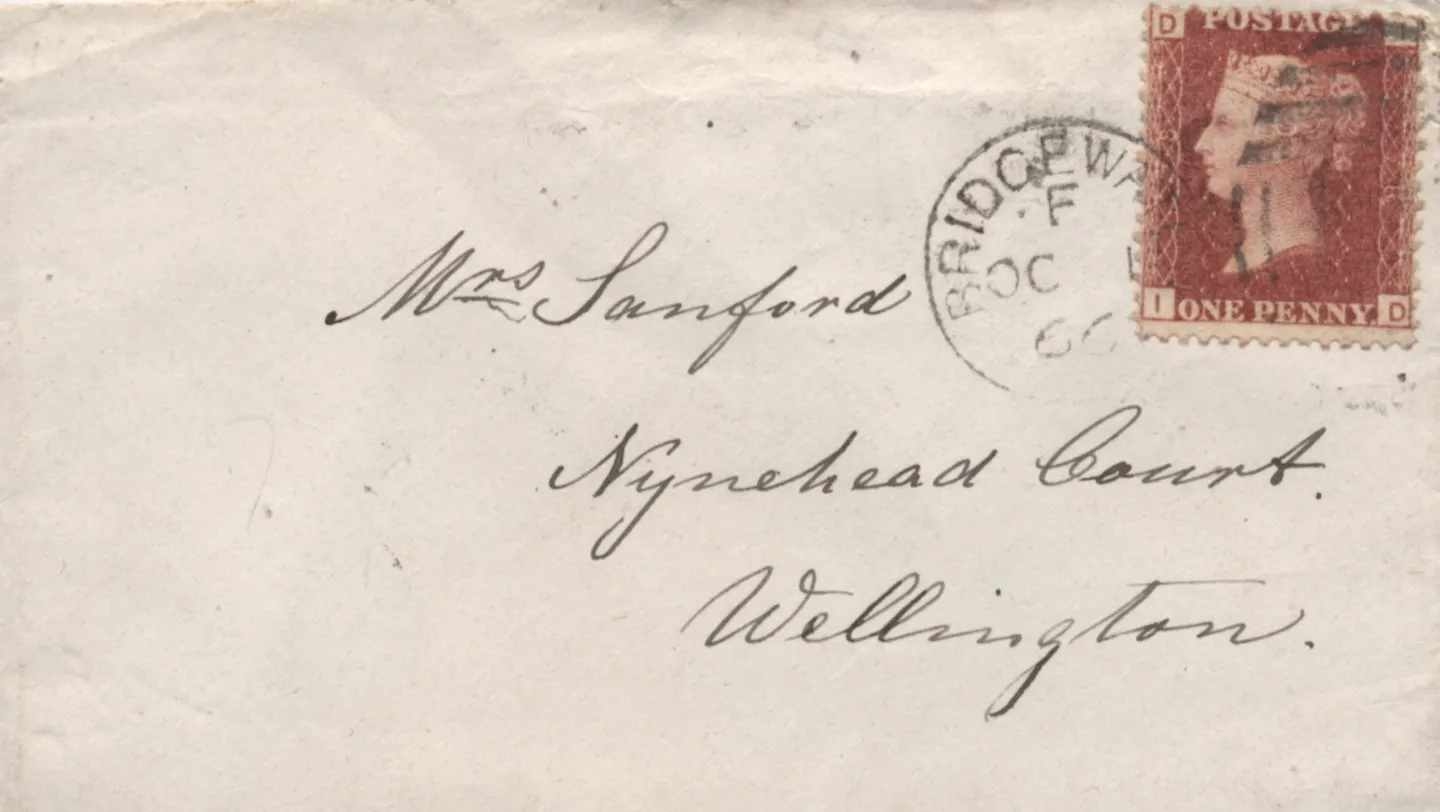 D POSTAGE
BRIDGEWA
F
OC
I ONE PENNY. D
Mrs Sanford
Nynehead Court.
Wellington.